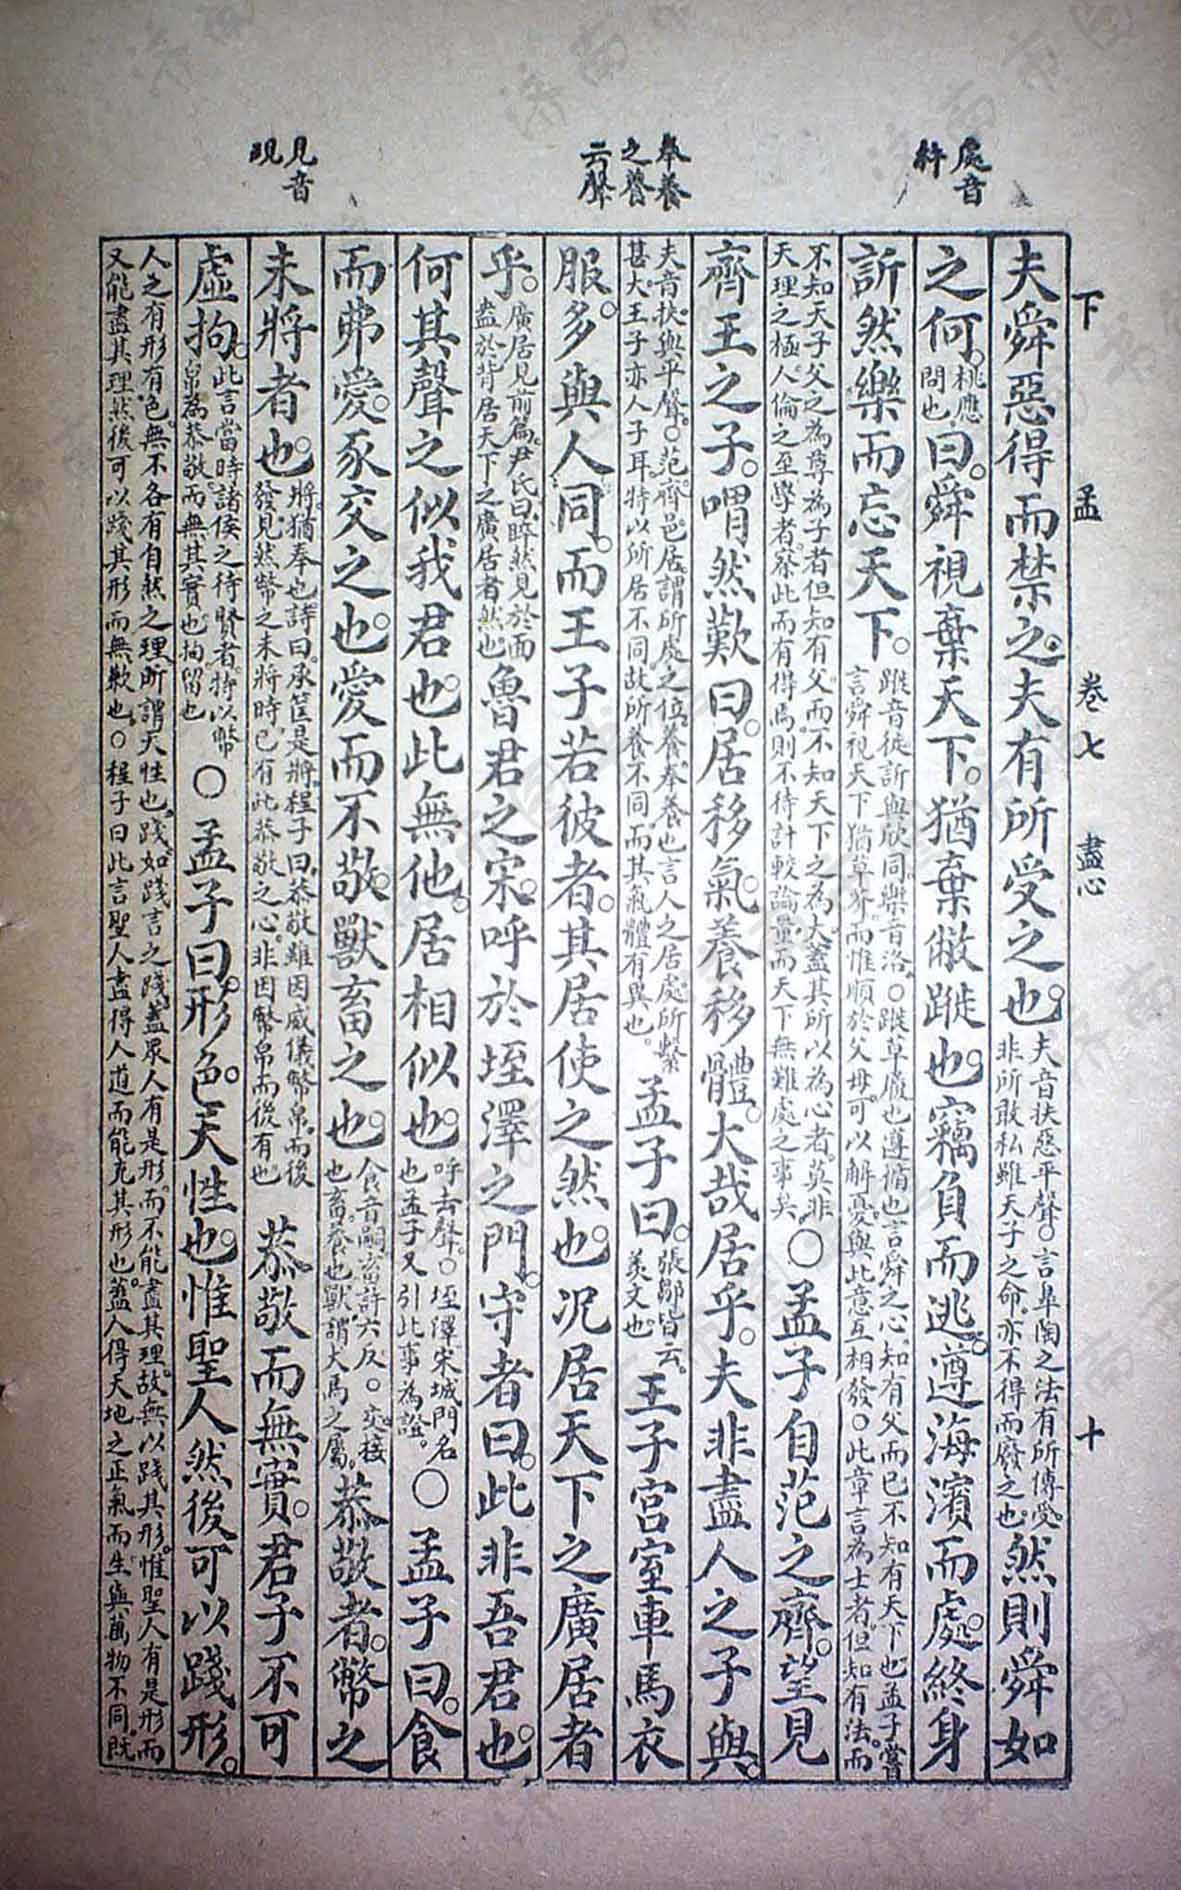 處音
杵
奉養
之養
云聲
見音
現
下 孟 卷七 盡心 十
夫舜惡得而禁之。夫有所受之也。夫音扶惡平聲。○言皋陶之法有所傳受。非所敢私雖天子之命亦不得而廢之也。然則舜如
之何。桃應問也曰。舜視棄天下。猶棄敝蹝也。竊負而逃。遵海濱而處。終身
訢然樂而忘天下。蹝音徙訢與欣同樂音洛。○蹝草屨也遵循也言舜之心知有父而已不知有天下也孟子嘗言舜視天下猶草芥而惟順於父母可以解憂與此意互相發○此章言為士者但知有法而
不知天子父之為尊為子者但知有父而不知天下之為大蓋其所以為心者莫非天理之極人倫之至學者察此而有得焉則不待計較論量而天下無難處之事矣○孟子自范之齊。望見
齊王之子。喟然歎曰。居移氣。養移體。大哉居乎。夫非盡人之子與。
夫音扶與平聲。○范齊邑居謂所處之位養奉養也言人之居處所繫甚大王子亦人子耳特以所居不同故所養不同而其氣體有異也。孟子曰。張鄒皆云羨文也。王子宮室車馬衣
服。多與人同。而王子若彼者。其居使之然也。况居天下之廣居者
乎。廣居見前篇。尹氏曰睟然見於面盎於背居天下之廣居者然也魯君之宋。呼於垤澤之門。守者曰。此非吾君也。
何其聲之似我君也。此無他。居相似也。呼去聲。○垤澤宋城門名也孟子又引此事為證。○孟子曰。食
而弗愛。豕交之也。愛而不敬。獸畜之也。食音嗣畜許六反。○交接也畜養也獸謂犬馬之屬。恭敬者。幣之
未將者也。將猶奉也詩曰。承筐是將程子曰恭敬雖因威儀幣帛而後發見然幣之未將時已有此恭敬之心非因幣帛而後有也恭敬而無實。君子不可
虛拘。此言當時諸侯之待賢者特以幣帛為恭敬而無其實也拘留也○孟子曰。形色。天性也。惟聖人然後可以踐形。
人之有形有色無不各有自然之理所謂天性也踐如踐言之踐蓋眾人有是形而不能盡其理故無以踐其形惟聖人有是形而又能盡其理然後可以踐其形而無歉也。○程子曰此言聖人盡得人道而能充其形也蓋人得天地之正氣而生與萬物不同既